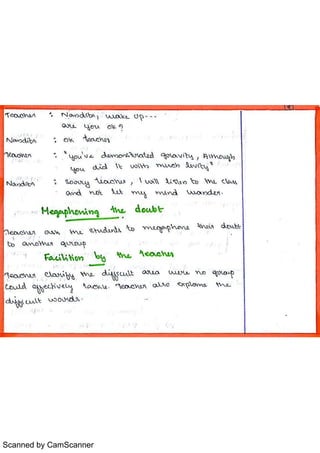 Teacher : Nandibn, wake up---
are you ok?
Nandibn : ok teacher
Teacher : "you've demonstrated gravity, Although
you did it with much levity"
Nandibn : Sorry teacher, I will listen to the class
and not let my mind wander.
Megaphoning the doubt
Teacher ask the students to megaphone their doubt
to another group
Facilition by the teacher
Teacher clarify the difficult area were no group
could effectively tackle. Teacher also explains the
difficult words.
Scanned by CamScanner